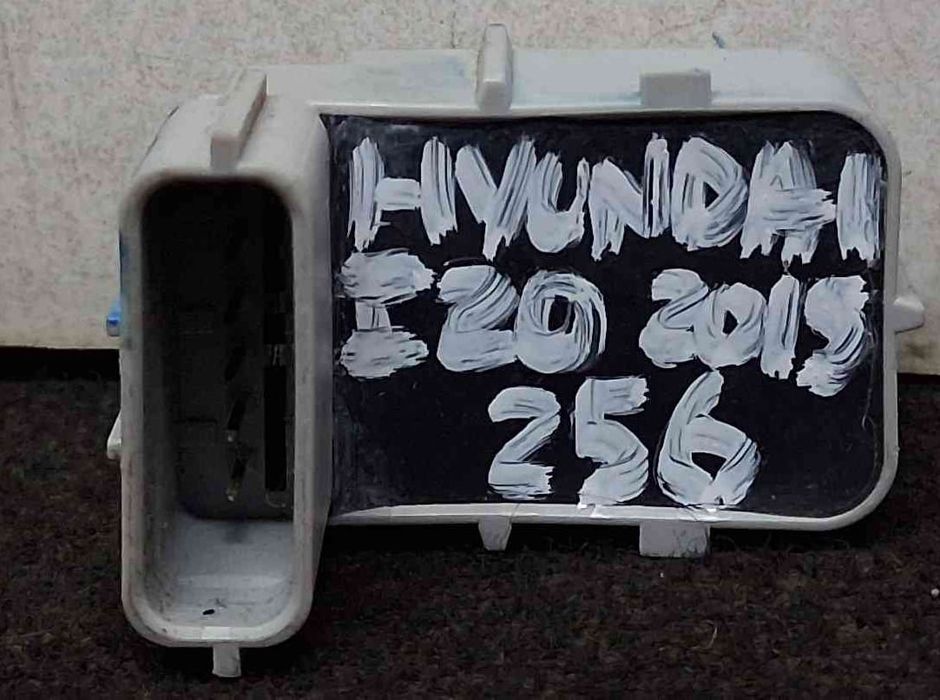 HYUNDAI
I20 2019
256